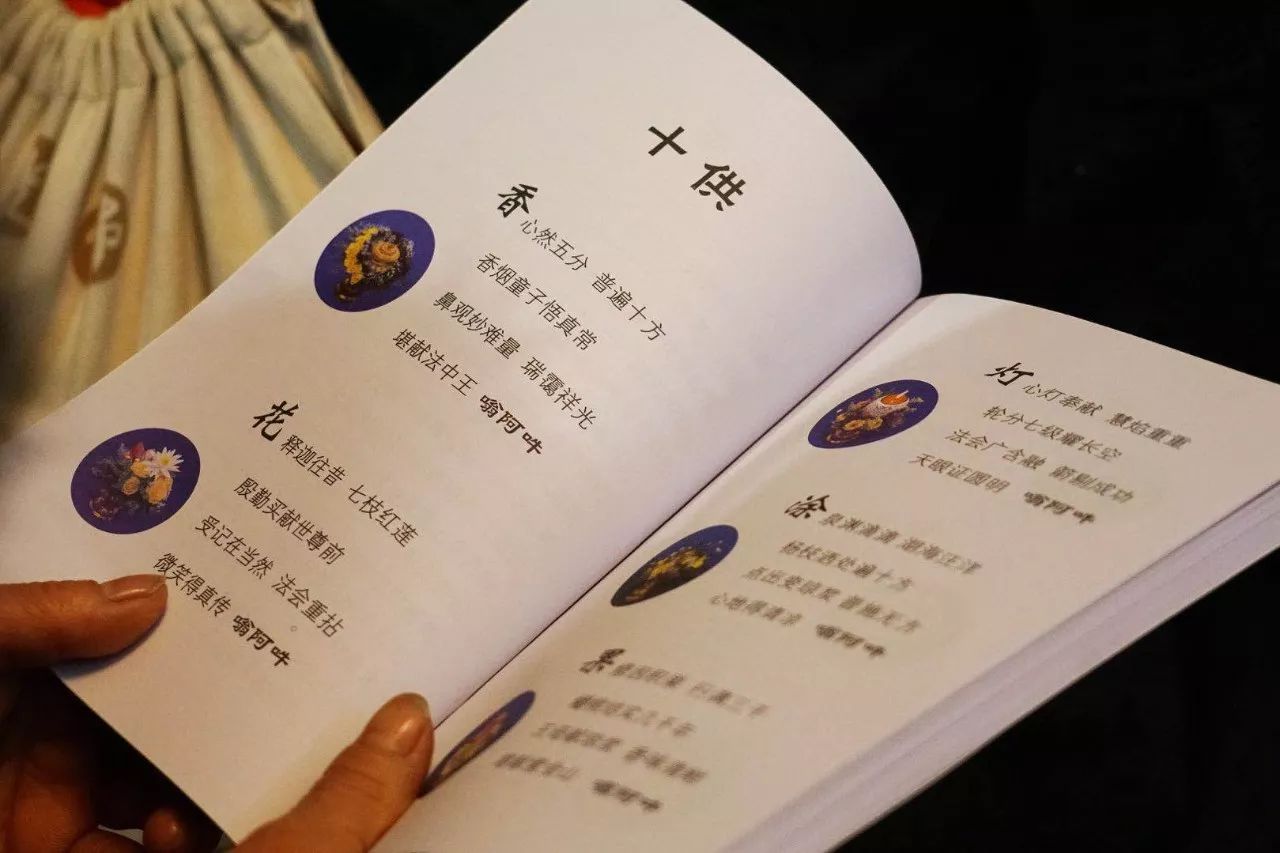 十供
香 心然五分 普遍十方
香烟童子悟真常
鼻观妙难量 瑞霭祥光
堪献法中王 嗡阿吽
花 释迦往昔 七枝红莲
殷勤买献世尊前
受记在当然 法会重拈
微笑得真传 嗡阿吽
灯 心灯奉献 慧焰重重
轮分七级耀长空
法会广含融 箭剔成功
天眼证圆明 嗡阿吽
涂
杨枝洒处遍十方
点匠变琼浆 普施无方
心地得清凉 嗡阿吽
果
嗡阿吽